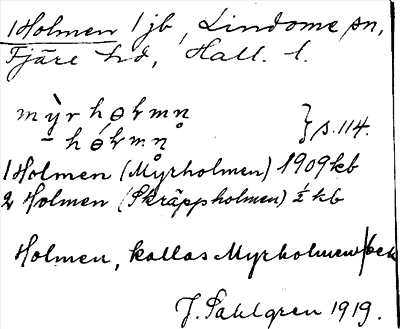 1 Holmen 1 jb, Lindome sn,
Fjäre hd, Hall. l.
mỳrhɵḷmn̥
– hɵḷmn̥ } s. 114.
1 Holmen (Myrholmen) 1909 kb
2 Holmen (Skräppholmen) ½ kb
Holmen, kallas Myrholmen
J. Sahlgren 1919.